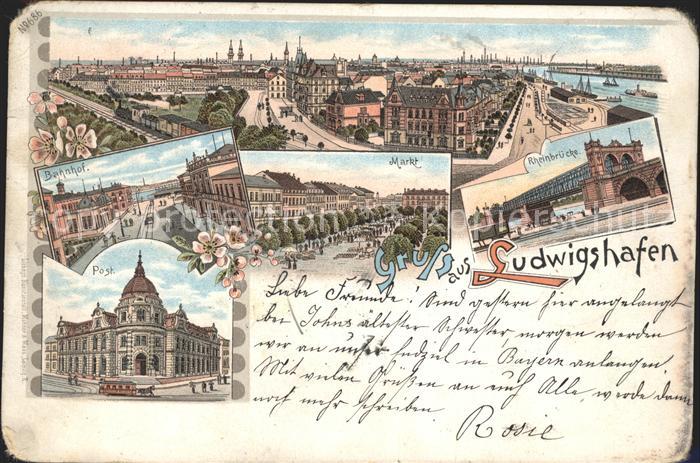 No 686
Bahnhof.
Markt
Rheinbrücke.
Post.
Gruß aus Ludwigshafen
Liebe Freunde! Sind gestern hier angelangt
bei Johns ältester Schwester, morgen werden
wir an unser Endziel in Bayern anlangen.
Mit vielen Grüßen an euch Alle, werde dann
noch mehr schreiben
Rosie